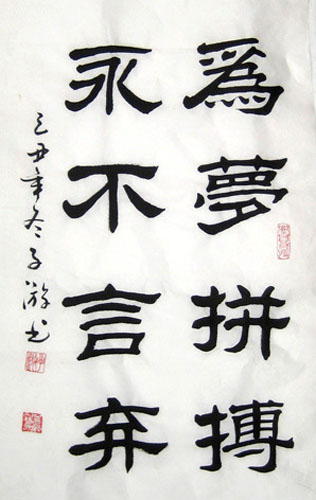 爲夢拼搏
永不言弃
己丑年冬子游书